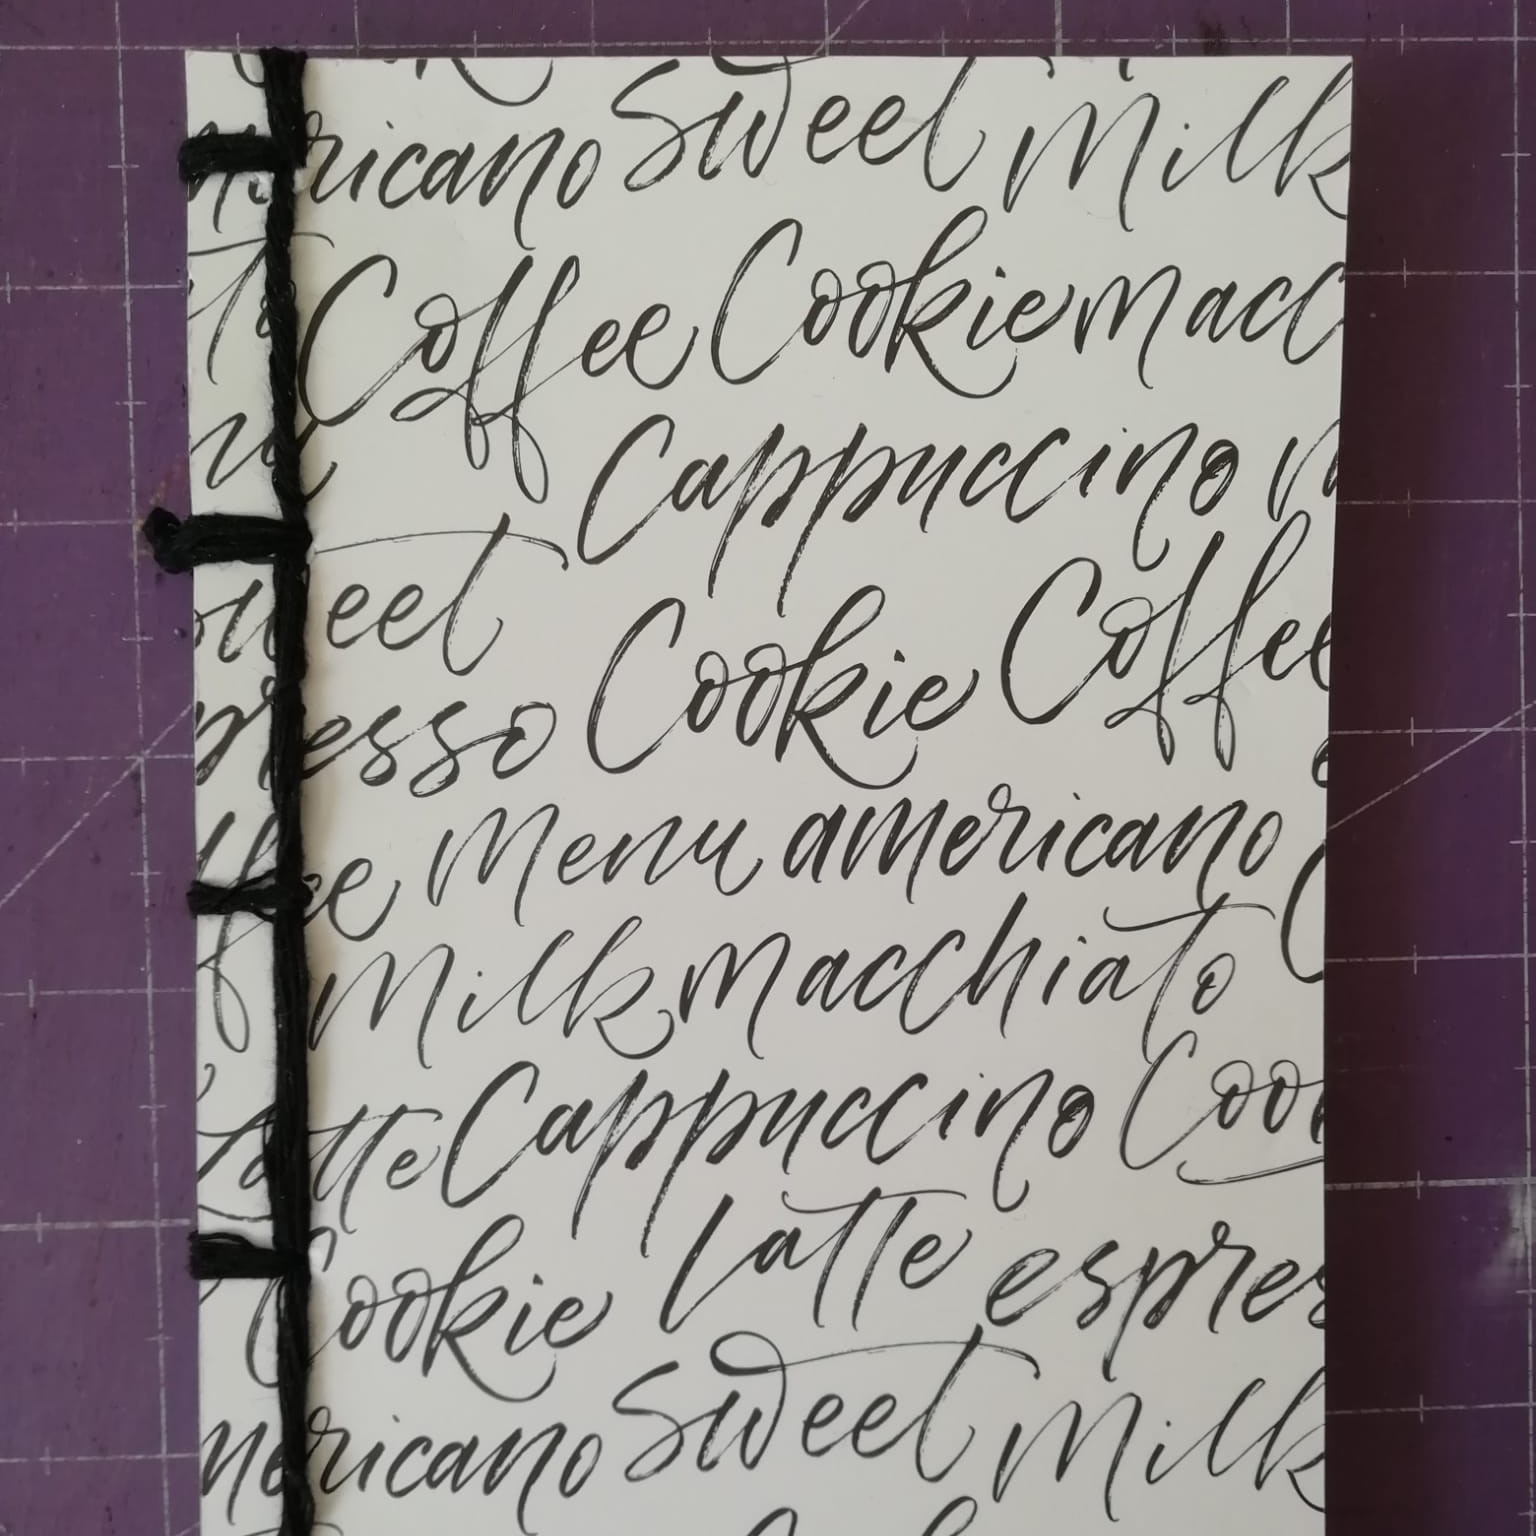 americano Sweet Milk
Coffee Cookie macc
Cappuccino
Sweet
presso Cookie Coffee
ffee Menu americano
Milk macchiato
Latte Cappuccino Coo
Cookie Latte espres
mericano Sweet Milk